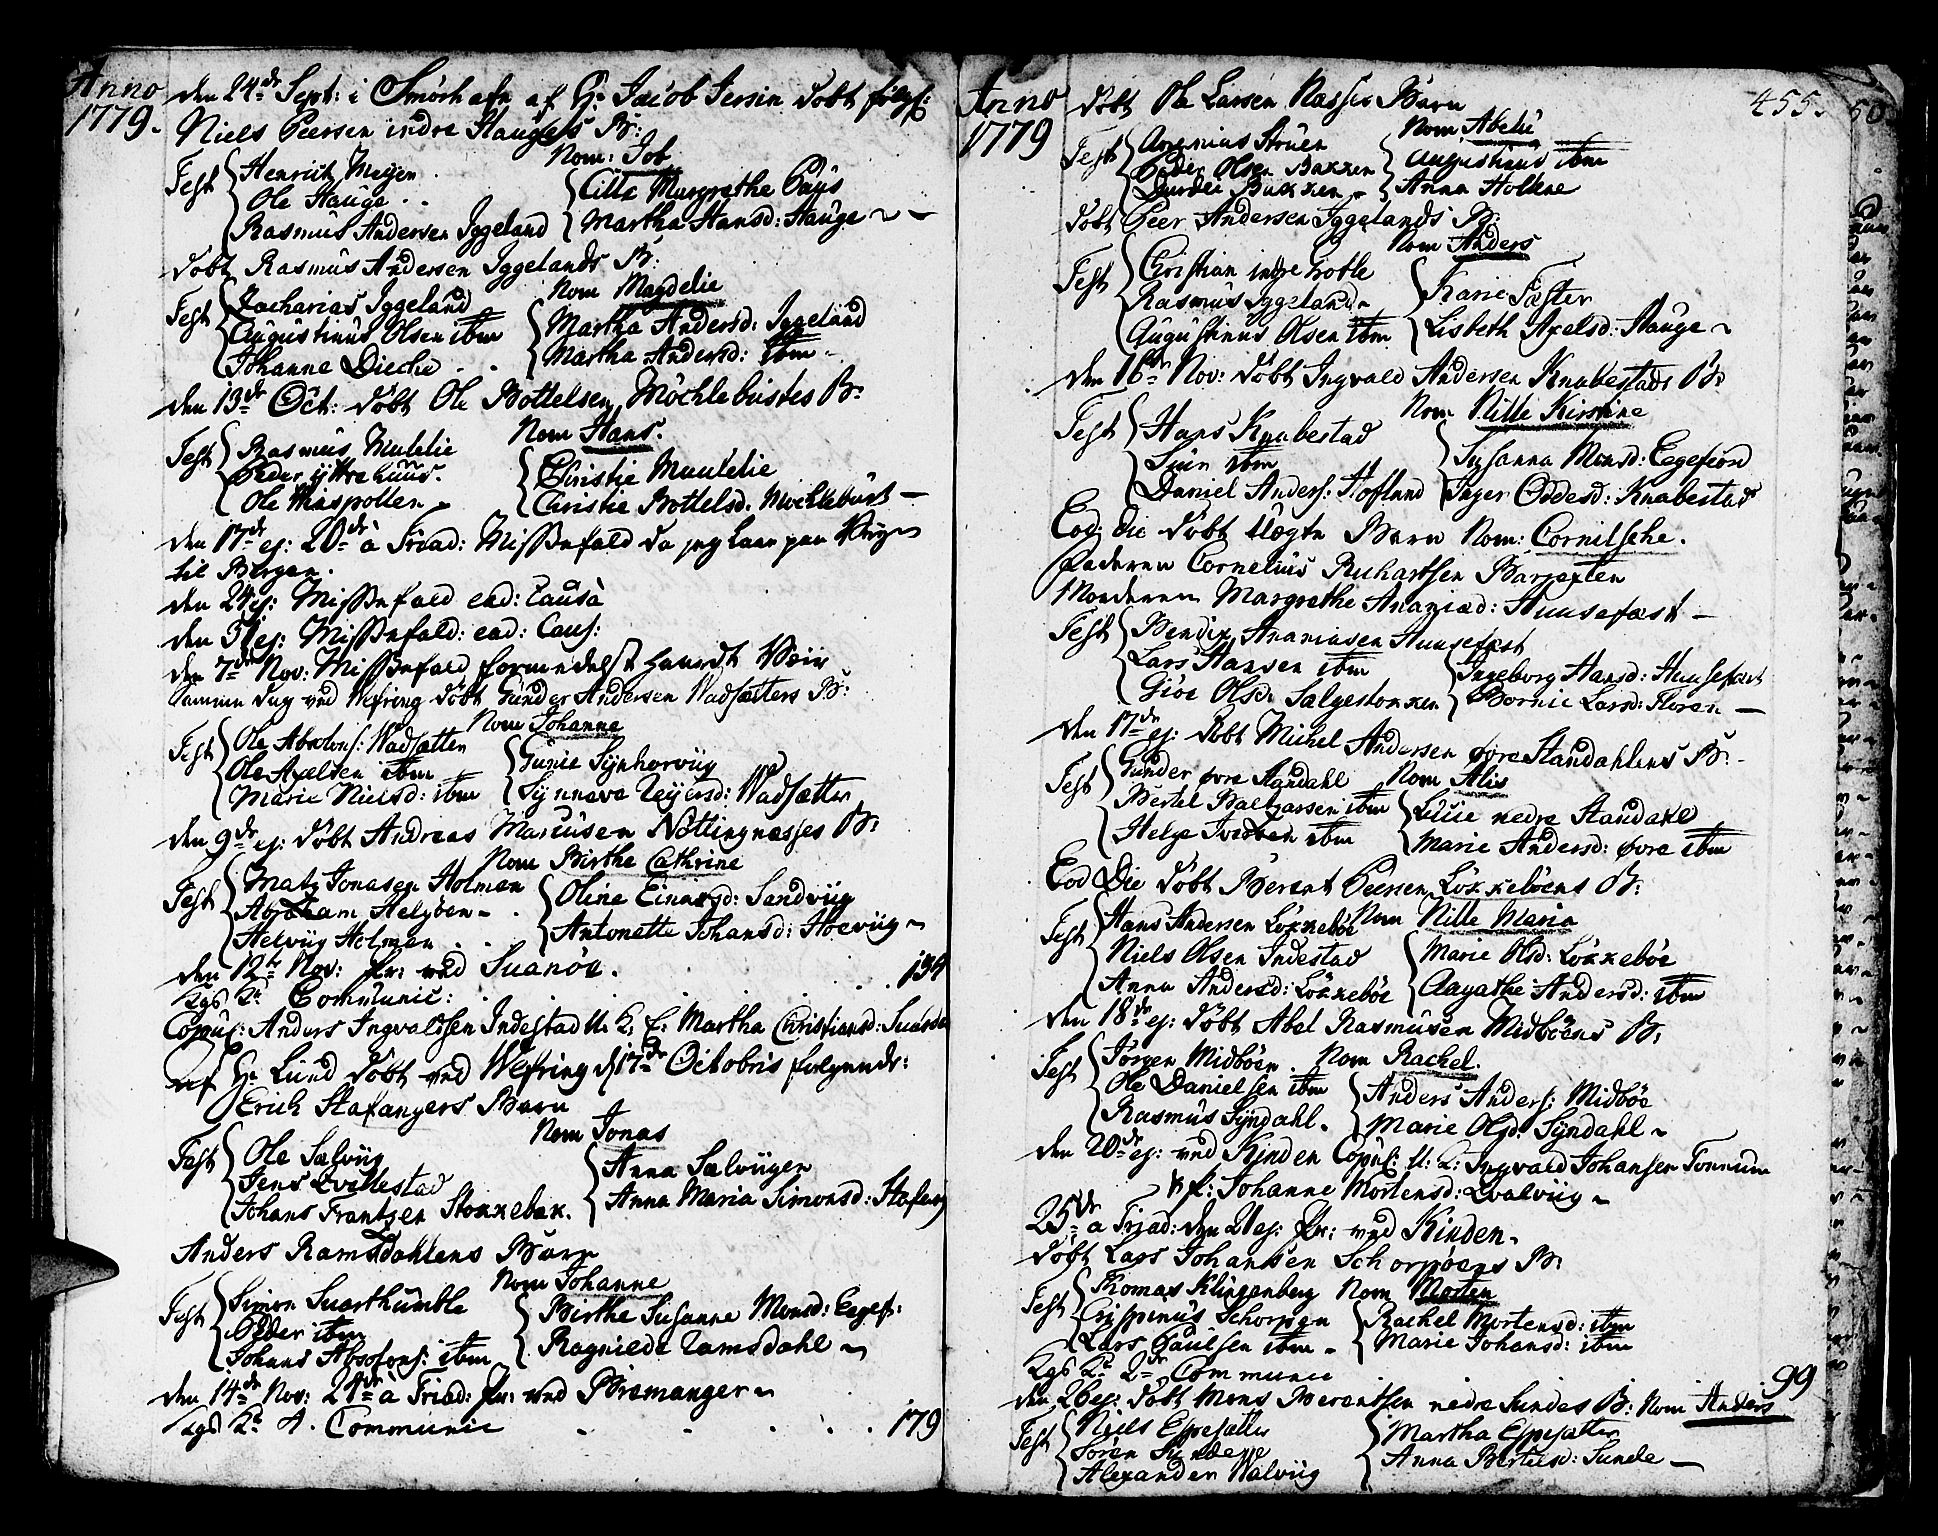 Anno
1779.
den 24de Sept: i Smörhafn af Hr Jacob Jersin döbt fölg:
Niels Peersen indre Hauges B:
Nom: Job
Test Henrich Meyer
Ole Hauge
Rasmus Andersen Iggeland
Cille Margrethe Paus
Martha Hansd: Hauge
döbt Rasmus Andersen Iggelands B:
Nom Magdelie
Test Zacharias Iggeland
Augustinus Olsen ibm
Johanne
Martha Andersd: Iggeland
Martha Andersd: ibm
den 13de Oct: döbt Ole Bottelsen Möchlebustes B:
Nom Hans.
Test Rasmus Mulelie
Peder yttrehuus.
Ole Maspollen
Christie Muulelie
Christie Bottelsd. Mochlebust
den 17de ej: 20de à Triad: Missefald da jeg laae paa
til Bergen.
den 24 ej: Missefald ead: Causa
den 31 ej: Missefald: ead: Caus:
den 7de Nov: Missefald formedelst haardt Veir
Samme dag ved Wefring döbt Gunder Andersen Wadsætters B:
Nom Johanne
Test Ole Absolons: Wadsætter
Ole Axelsen ibm
Marie Nielsd: ibm
Gunie Synhorviig
Synneve Wadsætter
den 9de ej: döbt Andreas Marcusen Nötlingnæsses B:
Nom Birthe Cathrine
Test Matz Jonasen Holmen
Abraham Helgöen
Helviig Holmen
Oline Einersd: Sandviig
Antonette Johansd: Hoeviig
den 12te Nov: Pr: ved Suanöe.
Kgs Kr Communic: 134
Copul: Anders Ingvaldsen Indestad U. K. f: Martha Christiansd: Suanöe
af Hr Lund döbt ved Wefring d 17de Octobris folgende:
Erich Stafangers Barn
Nom Jonas
Test Ole Sælviig
Jens Qvillestad
Johans Frantzen Stokkebek.
Anna Sælviigen
Anna Maria Simonsd: Stafang
Anders Ramsdahlens Barn
Nom Johanne
Test Simon Suarthumle
Peder ibm
Johans Absolons: ibm
Birthe Susanne Monsd: Eegef:
Ragnilde Ramsdahl
den 14de Nov: 24de à Triad: Pr: ved Bremanger
Kgs Kr A. Communic 179
Anno
1779
455.
döbt Ole Larsen Nasses Barn
Nom Abelü
Test Arsenius Struen
Peder Olsen Bakken
Durdei Bakken
Augustinus ibm
Anna Holkne
döbt Peer Andersen Iggelands B:
Nom Anders
Test Christian indre Hotle
Rasmus Iggeland
Augustinus Olsen ibm
Karie Fæster
Lisbeth Axelsd: Hauge
den 16de Nov: döbt Ingvald Andersen Knabestads B:
Nom Nille Kirstine
Test Hans Knabestad
Siur ibm
Daniel Anders: Hofland
Susanna Monsd: Eegefiord
Inger Oddesd: Knabestad
Eod: die döbt Uægte Barn Nom: Cornilsche.
Faderen Cornelius Richartsen Barjexten
Moederen Margrethe Ananiæd: Huusefæst
Test Bendix Ananiasen Huusefæst
Lars Hansen ibm
Giöe Olsd: Salgestokken
Ingeborg Hansd: Huusefæst
Bornie Larsd: Floren
den 17de ej: döbt Michel Andersen övre Standahlens B:
Nom Alis
Test Gunder övre Standahl
Bertel Baltzarsen ibm
Helge Ivers ibm
Lucie nedre Standahl
Marie Andersd: övre ibm
Eod Die döbt Berent Peersen Lökkeböens B:
Nom Nille Maria
Test Hans Andersen Lökkeböe
Niels Olsen Indestad
Anna Andersd: Lökkeböe
Marie Olsd: Lökkeböe
Aagathe Andersd: ibm
den 18de ej: döbt Abel Rasmusen Midböens B:
Nom Rachel.
Test Jörgen Midböen
Ole Danielsen ibm
Rasmus Syndahl.
Anders Anders: Midböe
Marie Olsd: Syndahl
den 20de ej: ved Kinden Copul: U: K: Ingvald Johansen Tonnum
k f: Johanne Mortensd: Qvalviig
25de à Triad: den 21 ej: Pr: ved Kinden.
döbt Lars Johansen Schorpöens B:
Nom Morten
Test Thomas Klingenberg
Crispinus Schorpen
Lars Paulsen ibm
Rachel Mortensd: ibm
Marie Johansd: ibm
Kgs Kr 2de Communic 99
den 26 ej: döbt Mons Berentsen nedre Sundes B: Nom Anders
Test Niels Espesætter
Sören Sunde
Alexander Walviig
Martha Espesætter
Anna Bertelsd: Sunde